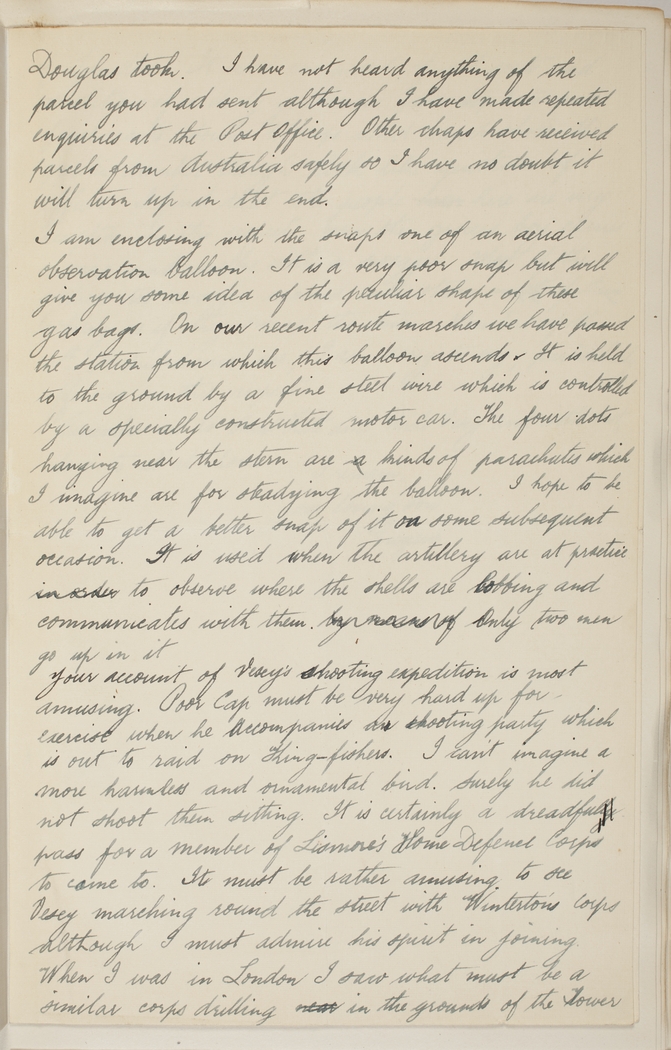 Douglas took. I have not heard anything of the
parcel you had sent although I have made repeated
enquiries at the Post Office. Other chaps have received
parcels from Australia safely so I have no doubt it
will turn up in the end.
I am enclosing with the snaps one of an aerial
observation balloon. It is a very poor snap but will
give you some idea of the peculiar shape of these
gas bags. On our recent route marches we have passed
the station from which this balloon ascends. It is held
to the ground by a fine steel wire which is controlled
by a specially constructed motor car. The four dots
hanging near the stern are a kinds of parachutes which
I imagine are for steadying the balloon. I hope to be
able to get a better snap of it on some subsequent
occasion. It is used when the artillery are at practice
in order to observe where the shells are lobbing and
communicates with them. by means of Only two men
go up in it
Your account of Vesey's shooting expedition is most
amusing. Poor Cap must be very hard up for
exercise when he accompanies a shooting party which
is out to raid on King-fishers. I can't imagine a
more harmless and ornamental bird. Surely he did
not shoot them sitting. It is certainly a dreadful
pass for a member of Lismore's Home Defence Corps
to come to. It must be rather amusing to see
Vesey marching round the street with Winterton's Corps
although I must admire his spirit in joining.
When I was in London I saw what must be a
similar corps drilling near in the grounds of the Tower